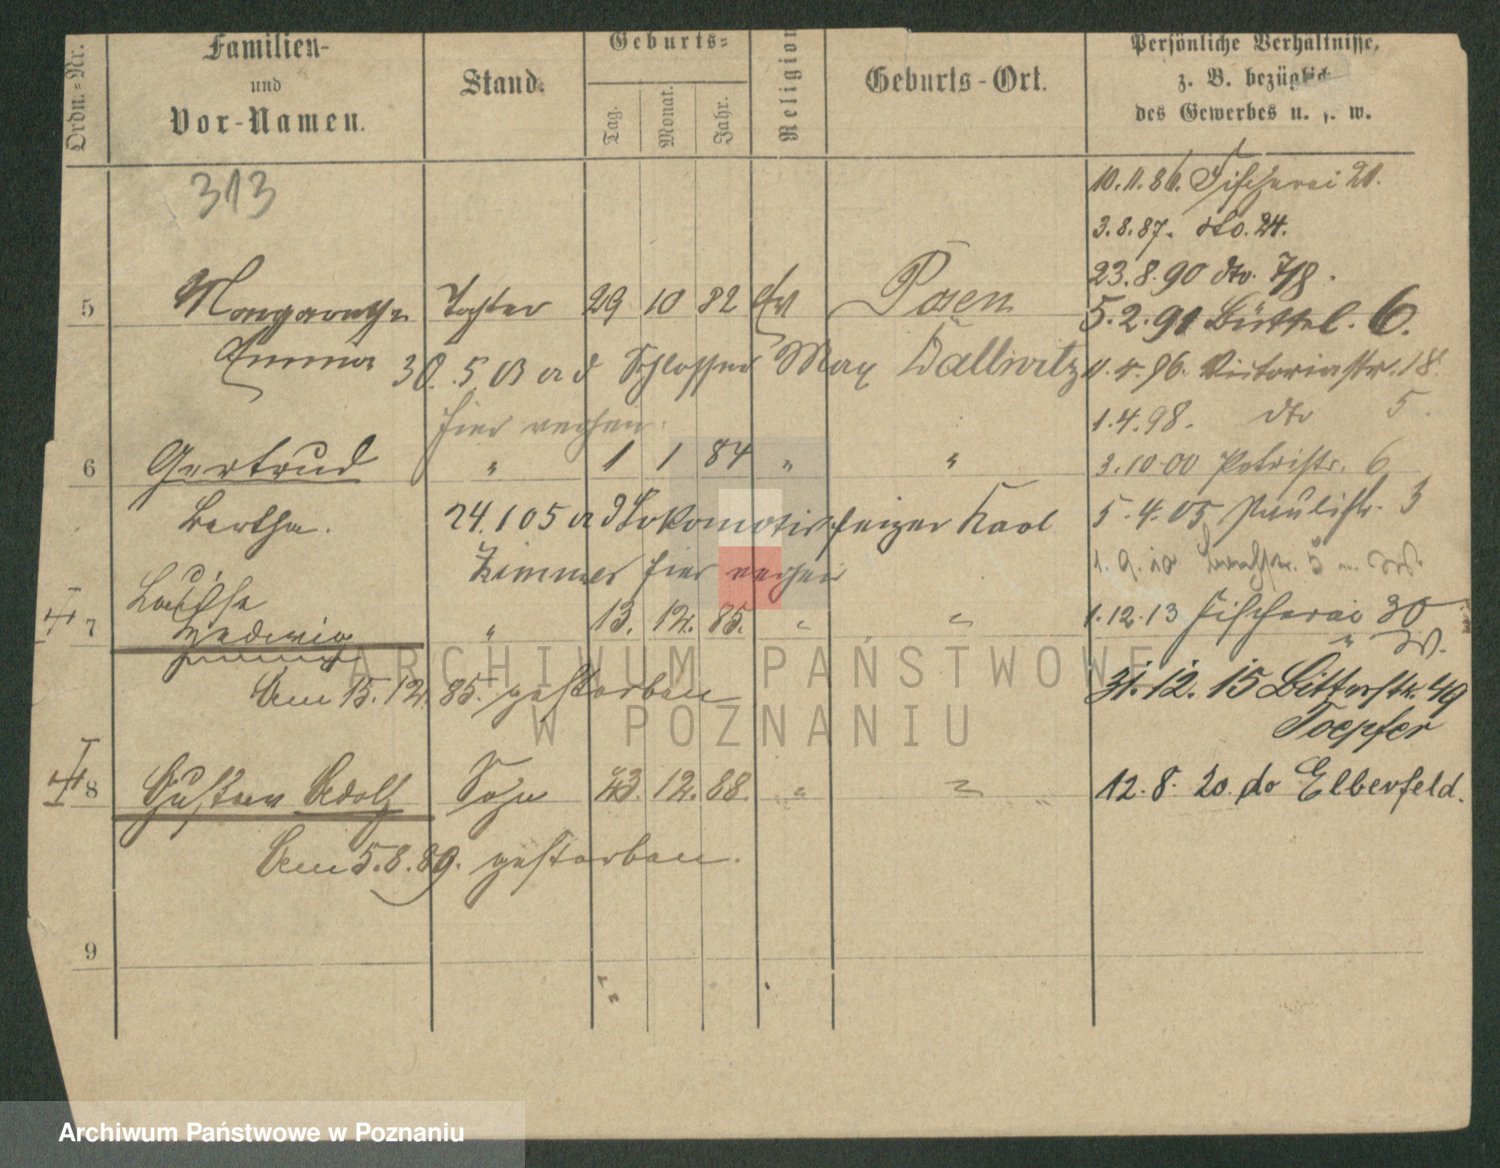 Ordn.-Nr.
Familien-
und
Vor-Namen.
Stand.
Geburts-
Tag.
Monat.
Jahr.
Religion
Geburts-Ort.
Persönliche Verhältnisse,
z. B. bezüglich
des Gewerbes u. s. w.
313
10.11.86. Fischerei 21.
3.8.87. dto. 24.
23.8.90 dto. 7/8.
5 Margarethe Tochter 29 10 82 Ev Posen
5.2.91 Büttel. 6.
Emma 30.5.03 a d Schlosser Max Dallwitz
1.4.96. Victoriastr. 18.
hier verehen.
1.4.98. dto 5.
6 Gertrud " 1 1 84 " "
3.10.00 Petristr. 6
Bertha. 24.1 05 a d Lokomotivheizer Karl
5.4.05 Paulistr. 3
Zimmer hier
1.9.10
Louise
7 Hedwig " 13. 12. 85. " "
1.12.13 Fischerei 30
" W.
Am 15.12.85. gestorben
31.12.15 Bitterstr. 49
Toepfer
8 Gustav Adolf Sohn 23. 12. 88. " "
12.8.20. do Elberfeld.
Am 5.8.89. gestorben.
9
ARCHIWUM PAŃSTWOWE
W POZNANIU
Archiwum Państwowe w Poznaniu